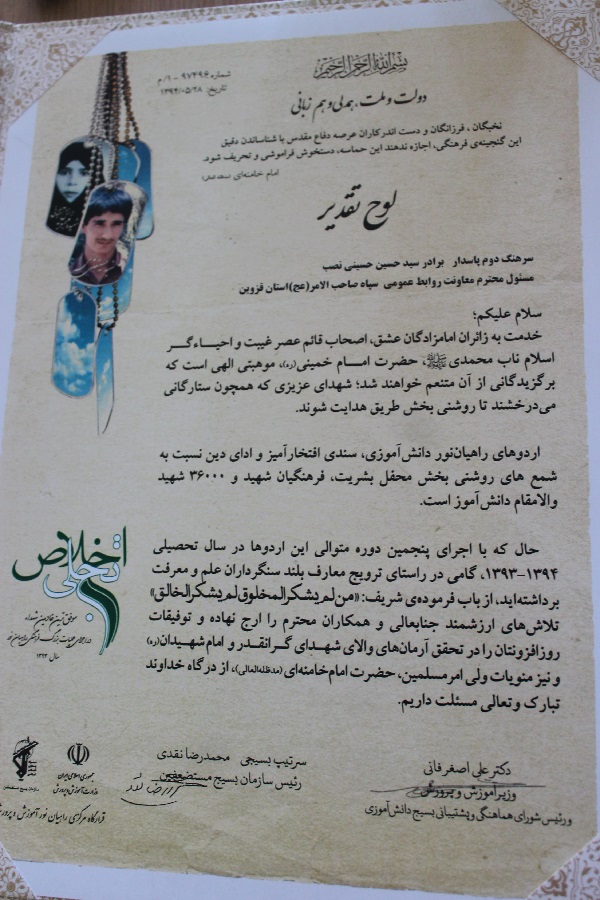 بسم الله الرحمن الرحیم
شماره: ۹۷۴۹۶ - ۱/م
تاریخ: ۱۳۹۴/۰۵/۲۸
دولت و ملت، همدلی و هم زبانی
نخبگان ، فرزانگان و دست اندرکاران عرصه دفاع مقدس با شناساندن دقیق
این گنجینه‌ی فرهنگی، اجازه ندهند این حماسه، دستخوش فراموشی و تحریف شود.
امام خامنه‌ای (مدظله العالی)
لوح تقدیر
سرهنگ دوم پاسدار برادر سید حسین حسینی نصب
مسئول محترم معاونت روابط عمومی سپاه صاحب الامر(عج)استان قزوین
سلام علیکم؛
خدمت به زائران امامزادگان عشق، اصحاب قائم عصر غیبت و احیاءگر
اسلام ناب محمدی ﷺ، حضرت امام خمینی(ره)، موهبتی الهی است که
برگزیدگانی از آن متنعم خواهند شد؛ شهدای عزیزی که همچون ستارگانی
می‌درخشند تا روشنی بخش طریق هدایت شوند.
اردوهای راهیان‌نور دانش‌آموزی، سندی افتخارآمیز و ادای دین نسبت به
شمع های روشنی بخش محفل بشریت، فرهنگیان شهید و ۳۶۰۰۰ شهید
والامقام دانش‌آموز است.
حال که با اجرای پنجمین دوره متوالی این اردوها در سال تحصیلی
۱۳۹۴-۱۳۹۳، گامی در راستای ترویج معارف بلند سنگرداران علم و معرفت
برداشته‌اید، از باب فرموده‌ی شریف: «من لم یشکر المخلوق لم یشکر الخالق»
تلاش‌های ارزشمند جنابعالی و همکاران محترم را ارج نهاده و توفیقات
روزافزونتان را در تحقق آرمان‌های والای شهدای گرانقدر و امام شهیدان(ره)
و نیز منویات ولی امر مسلمین، حضرت امام‌خامنه‌ای(مدظله‌العالی)، از درگاه خداوند
تبارک و تعالی مسئلت داریم.
تجلی اخلاص
سال ۱۳۹۴
دکتر علی اصغر فانی
وزیر آموزش و پرورش
و رئیس شورای هماهنگی و پشتیبانی بسیج دانش‌آموزی
سرتیپ بسیجی محمدرضا نقدی
رئیس سازمان بسیج مستضعفین
جمهوری اسلامی ایران
وزارت آموزش و پرورش
قرارگاه مرکزی راهیان نور آموزش و پرورش